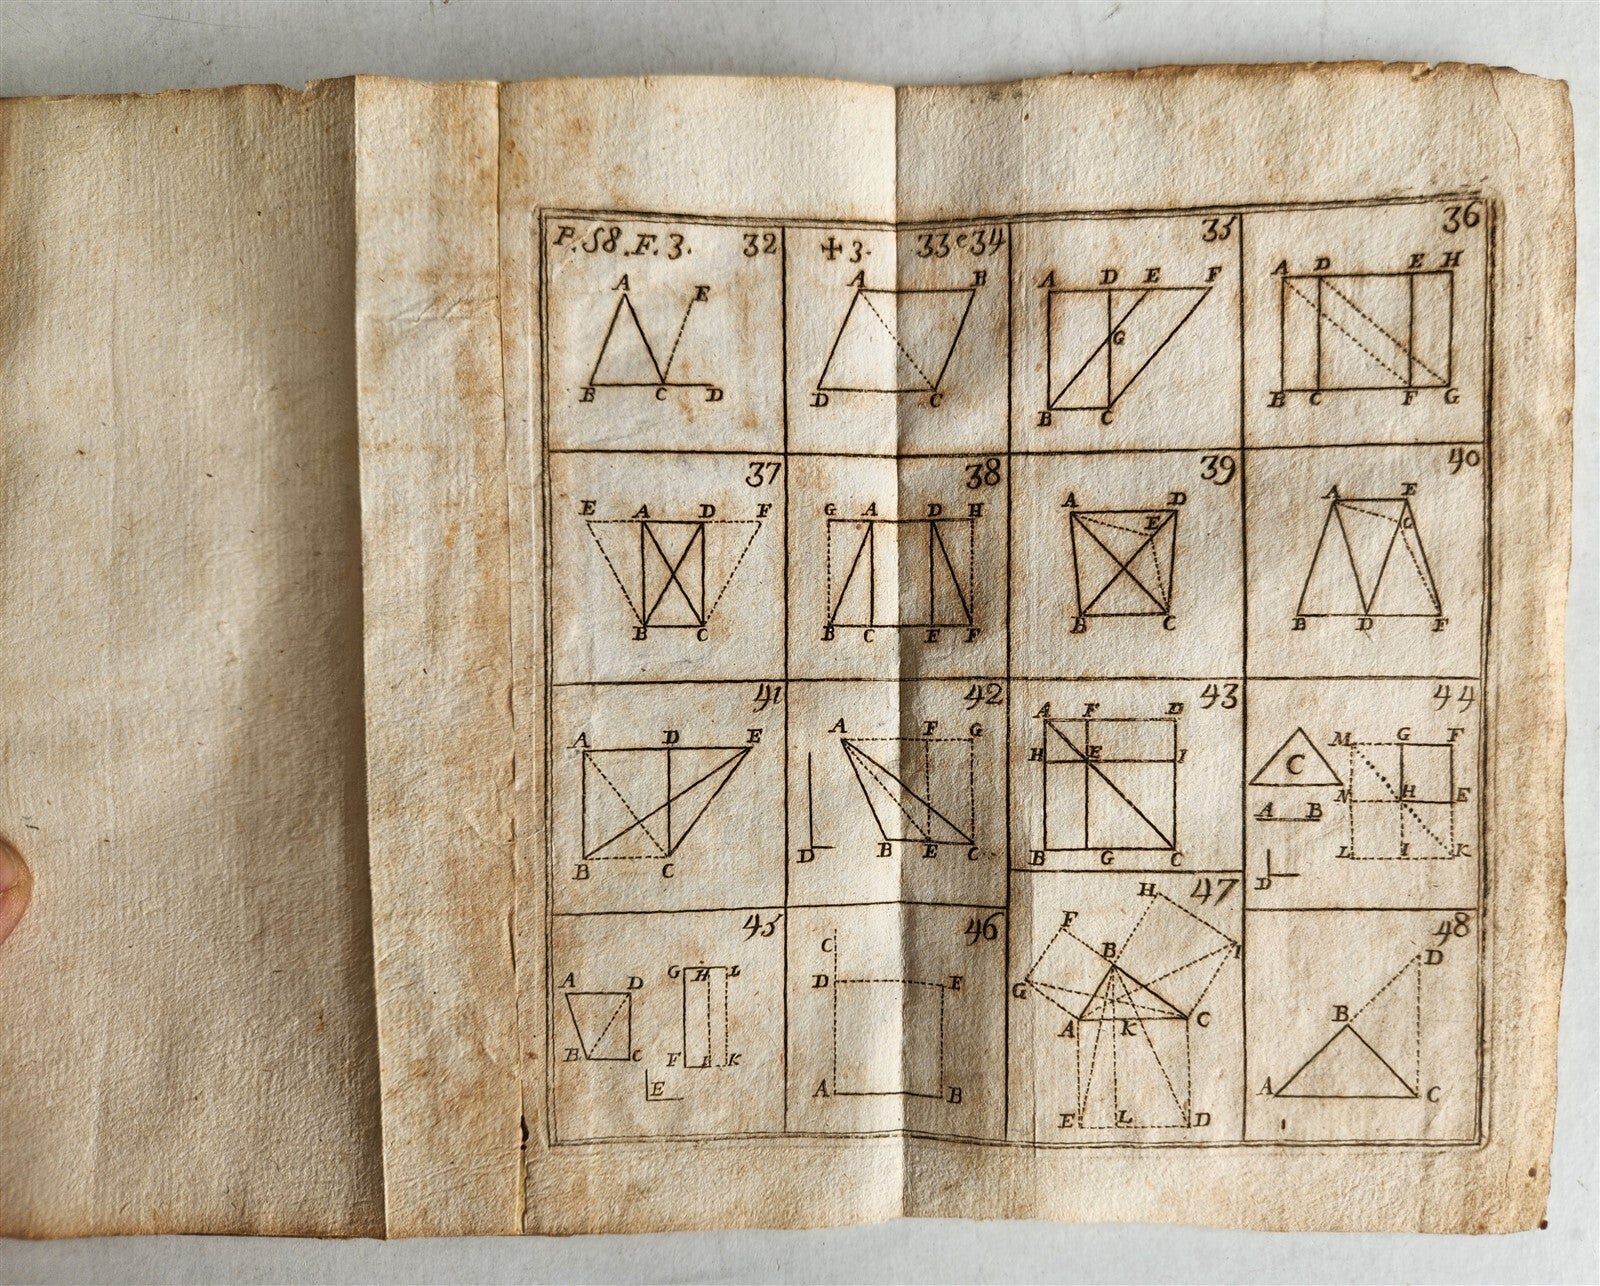 P. 58. F. 3. 32
A E
B C D
✠ 3. 33 e 34
A B
D C
35
A D E F
G
B C
36
A D E H
B C F G
37
E A D F
B C
38
G A D H
B C E F
39
A D
E
B C
40
A E
C
B D F
41
A D E
B C
42
A F G
D B E C
43
A F D
H E I
B G C
44
M G F
C
N H E
A B
L I K
D
45
G H L
A D
B C F I K
E
46
C
D E
A B
47
H
F
B I
G
A K C
E L D
48
D
B
A C